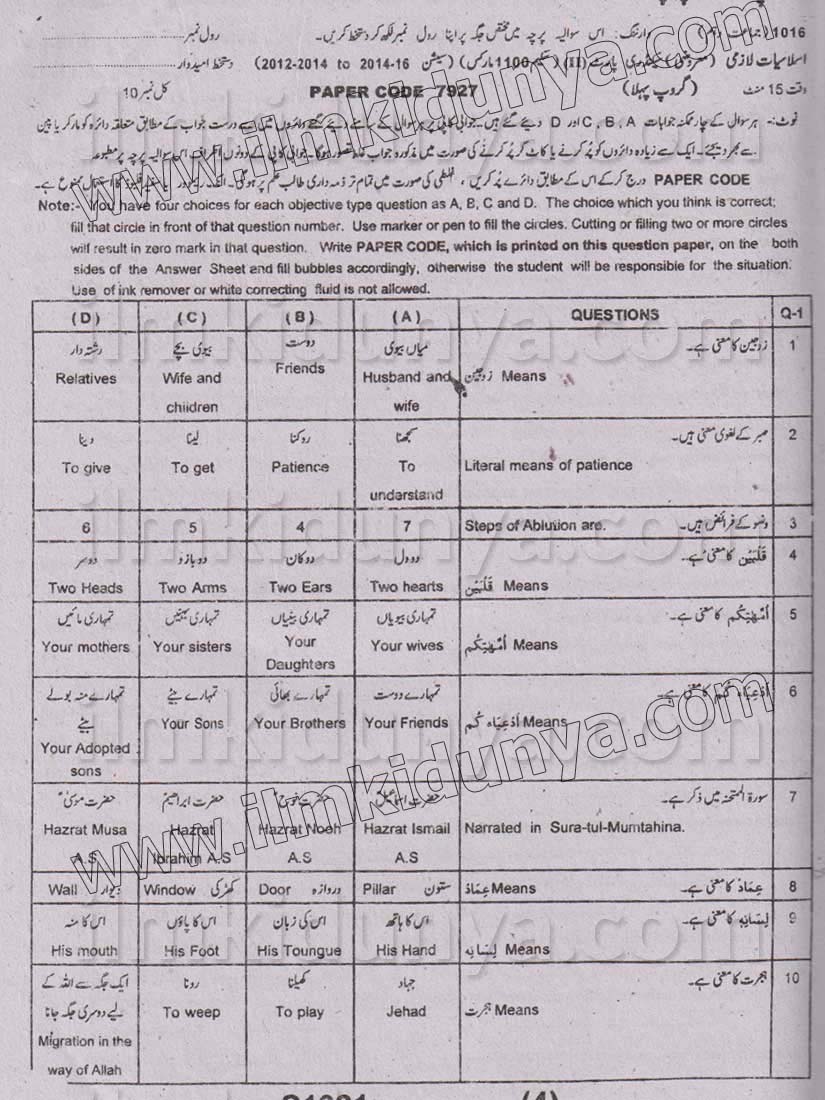 1016 (جماعت دہم) وارننگ: اس سوالیہ پرچہ میں مختص جگہ پر اپنا رول نمبر لکھ کر دستخط کریں۔ رول نمبر
اسلامیات لازمی (معروضی) (سکیم 1100 مارکس) (سیشن 2012-2014 to 2014-16) دستخط امیدوار
وقت 15 منٹ (گروپ پہلا) PAPER CODE 7927 کل نمبر 10
نوٹ:- ہر سوال کے چار ممکنہ جوابات C, B, A اور D دیئے گئے ہیں۔ جوابی کاپی پر ہر سوال کے سامنے دیئے گئے دائروں میں سے درست جواب کے مطابق متعلقہ دائرہ کو مارکر یا پین
سے بھر دیجئے۔ ایک سے زیادہ دائروں کو پُر کرنے یا کاٹ کر پُر کرنے کی صورت میں مذکورہ جواب غلط تصور ہوگا۔ جوابی کاپی کے دونوں اطراف اس سوالیہ پرچہ پر مطبوعہ
PAPER CODE درج کر کے اس کے مطابق دائرے پُر کریں، غلطی کی صورت میں تمام تر ذمہ داری طالب علم پر ہوگی۔ انک ریموور یا سفید فلیوڈ کا استعمال ممنوع ہے۔
Note:- You have four choices for each objective type question as A, B, C and D. The choice which you think is correct;
fill that circle in front of that question number. Use marker or pen to fill the circles. Cutting or filling two or more circles
will result in zero mark in that question. Write PAPER CODE, which is printed on this question paper, on the both
sides of the Answer Sheet and fill bubbles accordingly, otherwise the student will be responsible for the situation.
Use of ink remover or white correcting fluid is not allowed.
(D) (C) (B) (A) QUESTIONS Q-1
رشتہ دار بیوی بچے دوست میاں بیوی زوجین کا معنی ہے۔ 1
Relatives Wife and Friends Husband and زوجین Means
children wife
دینا لینا روکنا سمجھنا صبر کے لغوی معنی ہیں۔ 2
To give To get Patience To Literal means of patience
understand
6 5 4 7 Steps of Ablution are. وضو کے فرائض ہیں۔ 3
دو سر دو بازو دو کان دو دل قَلْبَیْنِ کا معنی ہے۔ 4
Two Heads Two Arms Two Ears Two hearts قَلْبَیْنِ Means
تمہاری مائیں تمہاری بہنیں تمہاری بیٹیاں تمہاری بیویاں اُمَّھٰتِکُم کا معنی ہے۔ 5
Your mothers Your sisters Your Your wives اُمَّھٰتِکُم Means
Daughters
تمہارے منہ بولے تمہارے بیٹے تمہارے بھائی تمہارے دوست اَدْعِیَاءَ کُم کا معنی ہے۔ 6
بیٹے Your Sons Your Brothers Your Friends اَدْعِیَاءَ کُم Means
Your Adopted
sons
حضرت موسیٰؑ حضرت ابراہیمؑ حضرت نوحؑ حضرت اسماعیلؑ سورۃ الممتحنہ میں ذکر ہے۔ 7
Hazrat Musa Hazrat Hazrat Nooh Hazrat Ismail Narrated in Sura-tul-Mumtahina.
A.S Ibrahim A.S A.S A.S
Wall دیوار Window کھڑکی Door دروازہ Pillar ستون عِمَادَ Means عِمَادَ کا معنی ہے۔ 8
اس کا منہ اس کا پاؤں اس کی زبان اس کا ہاتھ لِسَانِہٖ کا معنی ہے۔ 9
His mouth His Foot His Toungue His Hand لِسَانِہٖ Means
ایک جگہ سے اللہ کے رونا کھیلنا جہاد ہجرت کا معنی ہے۔ 10
لیے دوسری جگہ جانا To weep To play Jehad ہجرت Means
Migration in the
way of Allah
(4)
www.ilmkidunya.com
ilmkidunya.com